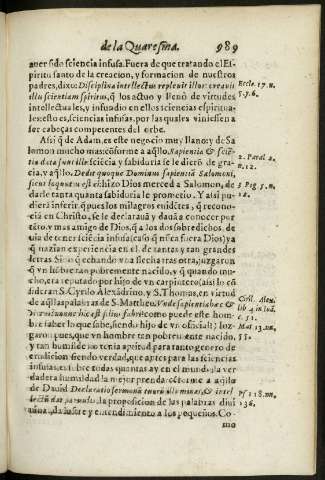 de la Quaresma. 989
auer sido sciencia infusa. Fuera de que tratando el Es-
piritu santo de la creacion, y formacion de nuestros
padres, dixo: Disciplina intellectus repleuit illos: creauit
illis scientiam spiritus, q̃ los actuo y lleno de virtudes
intellectuales, y infundio en ellos sciencias espiritua-
les: esto es, sciencias infusas, por las quales viniessen a
ser cabeças competentes del orbe.
Eccle. 17. n.
5. 7. 6.
Assi q̃ de Adam, es este negocio muy llano: y de Sa
lomon mucho mas cõforme a aq̃llo. Sapientia & sciẽ-
tia data sunt illi: sciẽcia y sabiduria se le dierõ de gra-
cia, y aq̃llo. Dedit quoque Dominus sapientiã Salomoni,
sicut loquutus est ei: hizo Dios merced a Salomon, de
darle tanta quanta sabiduria le prometio. Y assi pu-
2. Paral. 2.
n. 12.
3. Reg. 5. n.
12.
diera inferir, q̃ pues los milagros euidẽtes, q̃ recono-
cia en Christo, se le declarauã y dauã a conocer por
sãto, y mas amigo de Dios, q̃ a los dos sobredichos, de
uia de tener sciẽcia infusa (caso q̃ no fuera Dios) ya
q̃ nazian experiencia en el de tantas y tan grandes
letras Sino q̃ echando vna flecha tras otra, juzgaron
q̃ vn hõbre tan pobremente nacido, y q̃ quando mu-
cho, era reputado por hijo de vn carpintero (assi lo cõ
sideran S. Cyrilo Alexãdrino, y S. Thomas, en virtud
de aq̃llas palabras de S. Mattheo, Vnde sapientia hæc &
como puede este hom-
bre saber lo que sabe, siendo hijo de vn official?) juz-
garon pues, que vn hombre tan pobremente nacido,
y tan humilde no tenia aptitud para tanto genero de
erudicion siendo verdad, que a ptes para las sciencias
infusas, es sobre todas quantas ay en el mundo la ver
dadera humildad la mejor prenda, cõforme a aq̃llo
Ciril. Alex.
lib. 4 in Ioã.
c. 51.
Mat. 13. nu.
55.
de Dauid Declaratio sermonũ tuorũ illuminat, & intel
lectũ dat paruulis, la proposicion de las palabras diui
nas, da lustre y entendimiento a los pequeños. Co-
mo
Ps 118. nu.
136.